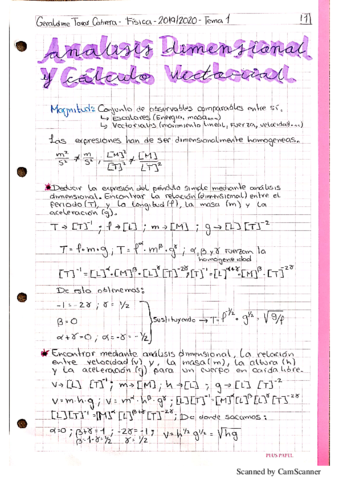 Geraldine Torres Cabrera - Física - 2019/2020 - Tema 1
Analisis Dimensional
y Cálculo Vectorial
Magnitud: Conjunto de observables comparables entre sí.
↳ Escalares (Energía, masa...)
↳ Vectoriales (movimiento lineal, fuerza, velocidad...)
Las expresiones han de ser dimensionalmente homogeneas.
m²/s² ≠ m/s, [M]²/[T]² ≠ [M]/[T]²
Deducir la expresión del péndulo simple mediante análisis
dimensional. Encontrar la relación (dimensional) entre el
periodo (T), y la longitud (l), la masa (m) y la
aceleración (g).
T → [T]⁻¹ ; l → [L] ; m → [M] ; g → [L][T]⁻²
T = l·m·g ; T = l^α · m^β · g^γ ; α, β, γ fuerzan la
homogeneidad
[T]⁻¹ = [L]^α·[M]^β·[L]^γ[T]^-2γ ; [T]⁻¹ = [L]^α+γ·[M]^β·[T]^-2γ
De esto obtenemos:
-1 = -2γ ; γ = 1/2
β = 0
α + γ = 0 ; α = -γ = -1/2
Sustituyendo → T = l^-1/2 · g^1/2 = √g/l
Encontrar mediante analisis dimensional, la relación
entre velocidad (v) y, la masa (m), la altura (h)
y la aceleración (g) para un cuerpo en caída libre.
v → [L] [T]⁻¹ ; m → [M] ; h → [L] ; g → [L] [T]⁻²
v = m·h·g ; v = m^α · h^β · g^γ ; [L][T]⁻¹ = [M]^α [L]^β [L]^γ [T]^-2γ
[L][T]⁻¹ = [M]^α [L]^β+γ [T]^-2γ ; De donde sacamos:
α = 0 ; β+γ = 1 ; -2γ = -1 ; v = h^1/2 g^1/2 = √hg
β = 1-γ = 1/2 γ = 1/2
Scanned by CamScanner